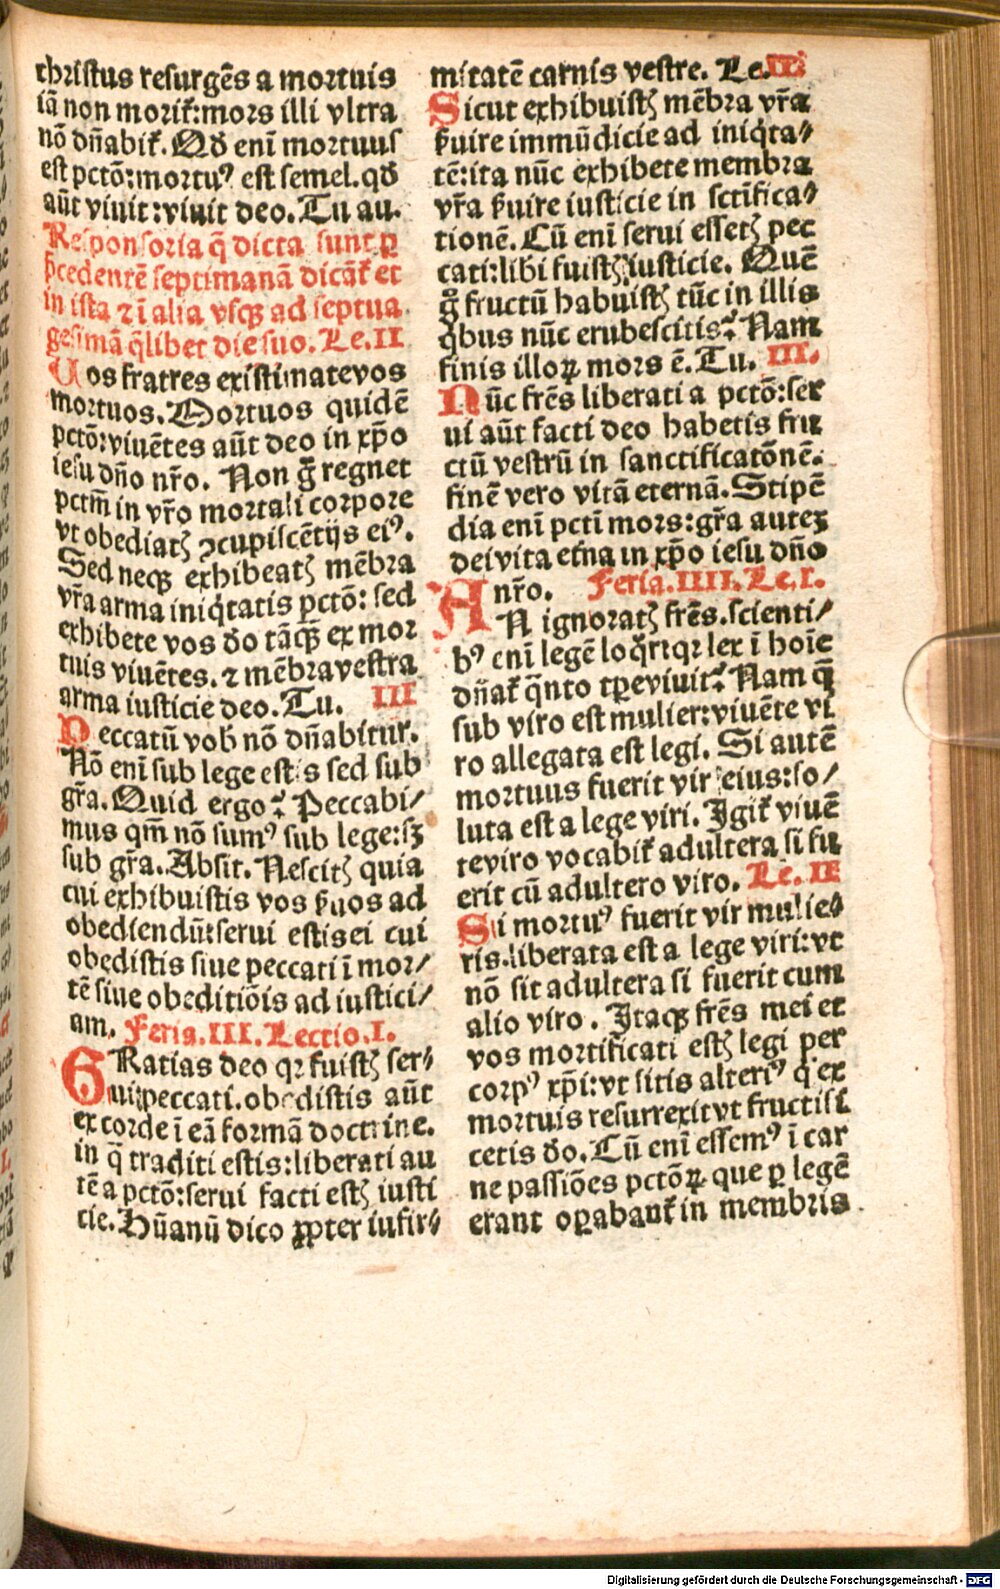 christus resurgēs a mortuis
iā non moriť:mors illi vltra
nō dn̄abiť. Qd̄ enī mortuus
est pctō:mortuꝰ est semel.qd̄
aūt viuit:viuit deo. Tu au.
Responsoria q̄ dicta sunt ꝑ
p̄cedentē septimanā dicāť et
in ista ⁊ ī alia vsqꝫ ad septua
gesimā q̄libet die suo. Le.II
Uos fratres existimate vos
mortuos. Mortuos quidē
pctō:viuētes aūt deo in xp̄o
iesu dn̄o nr̄o. Non g̊ regnet
pctm̄ in vr̄o mortali corpore
vt obediatꝭ ꝯcupiscētijs eiꝰ.
Sed neqꝫ exhibeatꝭ mēbra
vr̄a arma iniq̇tatis pctō: sed
exhibete vos do tāqꝫ̄ ex mor
tuis viuētes. ⁊ mēbra vestra
arma iusticie deo. Tu. III
Peccatū vob̄ nō dn̄abitur.
Nō enī sub lege estis sed sub
gr̄a. Quid ergo? Peccabi/
mus qm̄ nō sumꝰ sub lege:sꝫ
sub gr̄a. Absit. Nescitꝭ quia
cui exhibuistis vos ẜuos ad
obediendū:serui estis ei cui
obedistis siue peccati ī mor/
tē siue obeditiōis ad iustici/
am. Feria.III.Lectio.I.
GRatias deo qꝛ fuistꝭ ser⸗
ui peccati. obedistis aūt
ex corde ī eā formā doctrine.
in q̄ traditi estis:liberati au
tē a pctō:serui facti estꝭ iusti
cie. Hūanū dico ꝓpter infir⸗
mitatē carnis vestre. Le.II.
Sicut exhibuistꝭ mēbra vr̄a
ẜuire immūdicie ad iniq̇ta⸗
tē:ita nūc exhibete membra
vr̄a ẜuire iusticie in sct̄ifica⸗
tionē. Cū enī serui essetꝭ pec
cati:libi fuistꝭ iusticie. Quē
g̊ fructū habuistꝭ tūc in illis
q̇bus nūc erubescitis? Nam
finis illoꝝ mors ē. Tu. III.
Nūc frēs liberati a pctō:ser
ui aūt facti deo habetis fru
ctū vestrū in sanctificatōnē.
finē vero vitā eternā. Stipē
dia enī pctī mors:gr̄a autēꝫ
dei vita et̄na in xp̄o iesu dn̄o
nr̄o. Feria.IIII.Le.I.
AN ignoratꝭ frēs. scienti/
bꝰ enī legē loq̇r:qꝛ lex ī hoīe
dn̄ať q̄nto tꝑe viuit? Nam q̄
sub viro est mulier:viuēte vi
ro allegata est legi. Si autē
mortuus fuerit vir eius:so/
luta est a lege viri. Igiť viuē
te viro vocabiť adultera si fu
erit cū adultero viro. Le. II
Si mortuꝰ fuerit vir mulie⸗
ris. liberata est a lege viri:vt
nō sit adultera si fuerit cum
alio viro. Itaqꝫ frēs mei et
vos mortificati estꝭ legi per
corpꝰ xp̄i:vt sitis alteriꝰ q̇ ex
mortuis resurrexit vt fructifi
cetis do. Cū enī essemꝰ ī car
ne passiōes pctōꝝ que ꝑ legē
erant oꝑabanť in membris
Digitalisierung gefördert durch die Deutsche Forschungsgemeinschaft - DFG